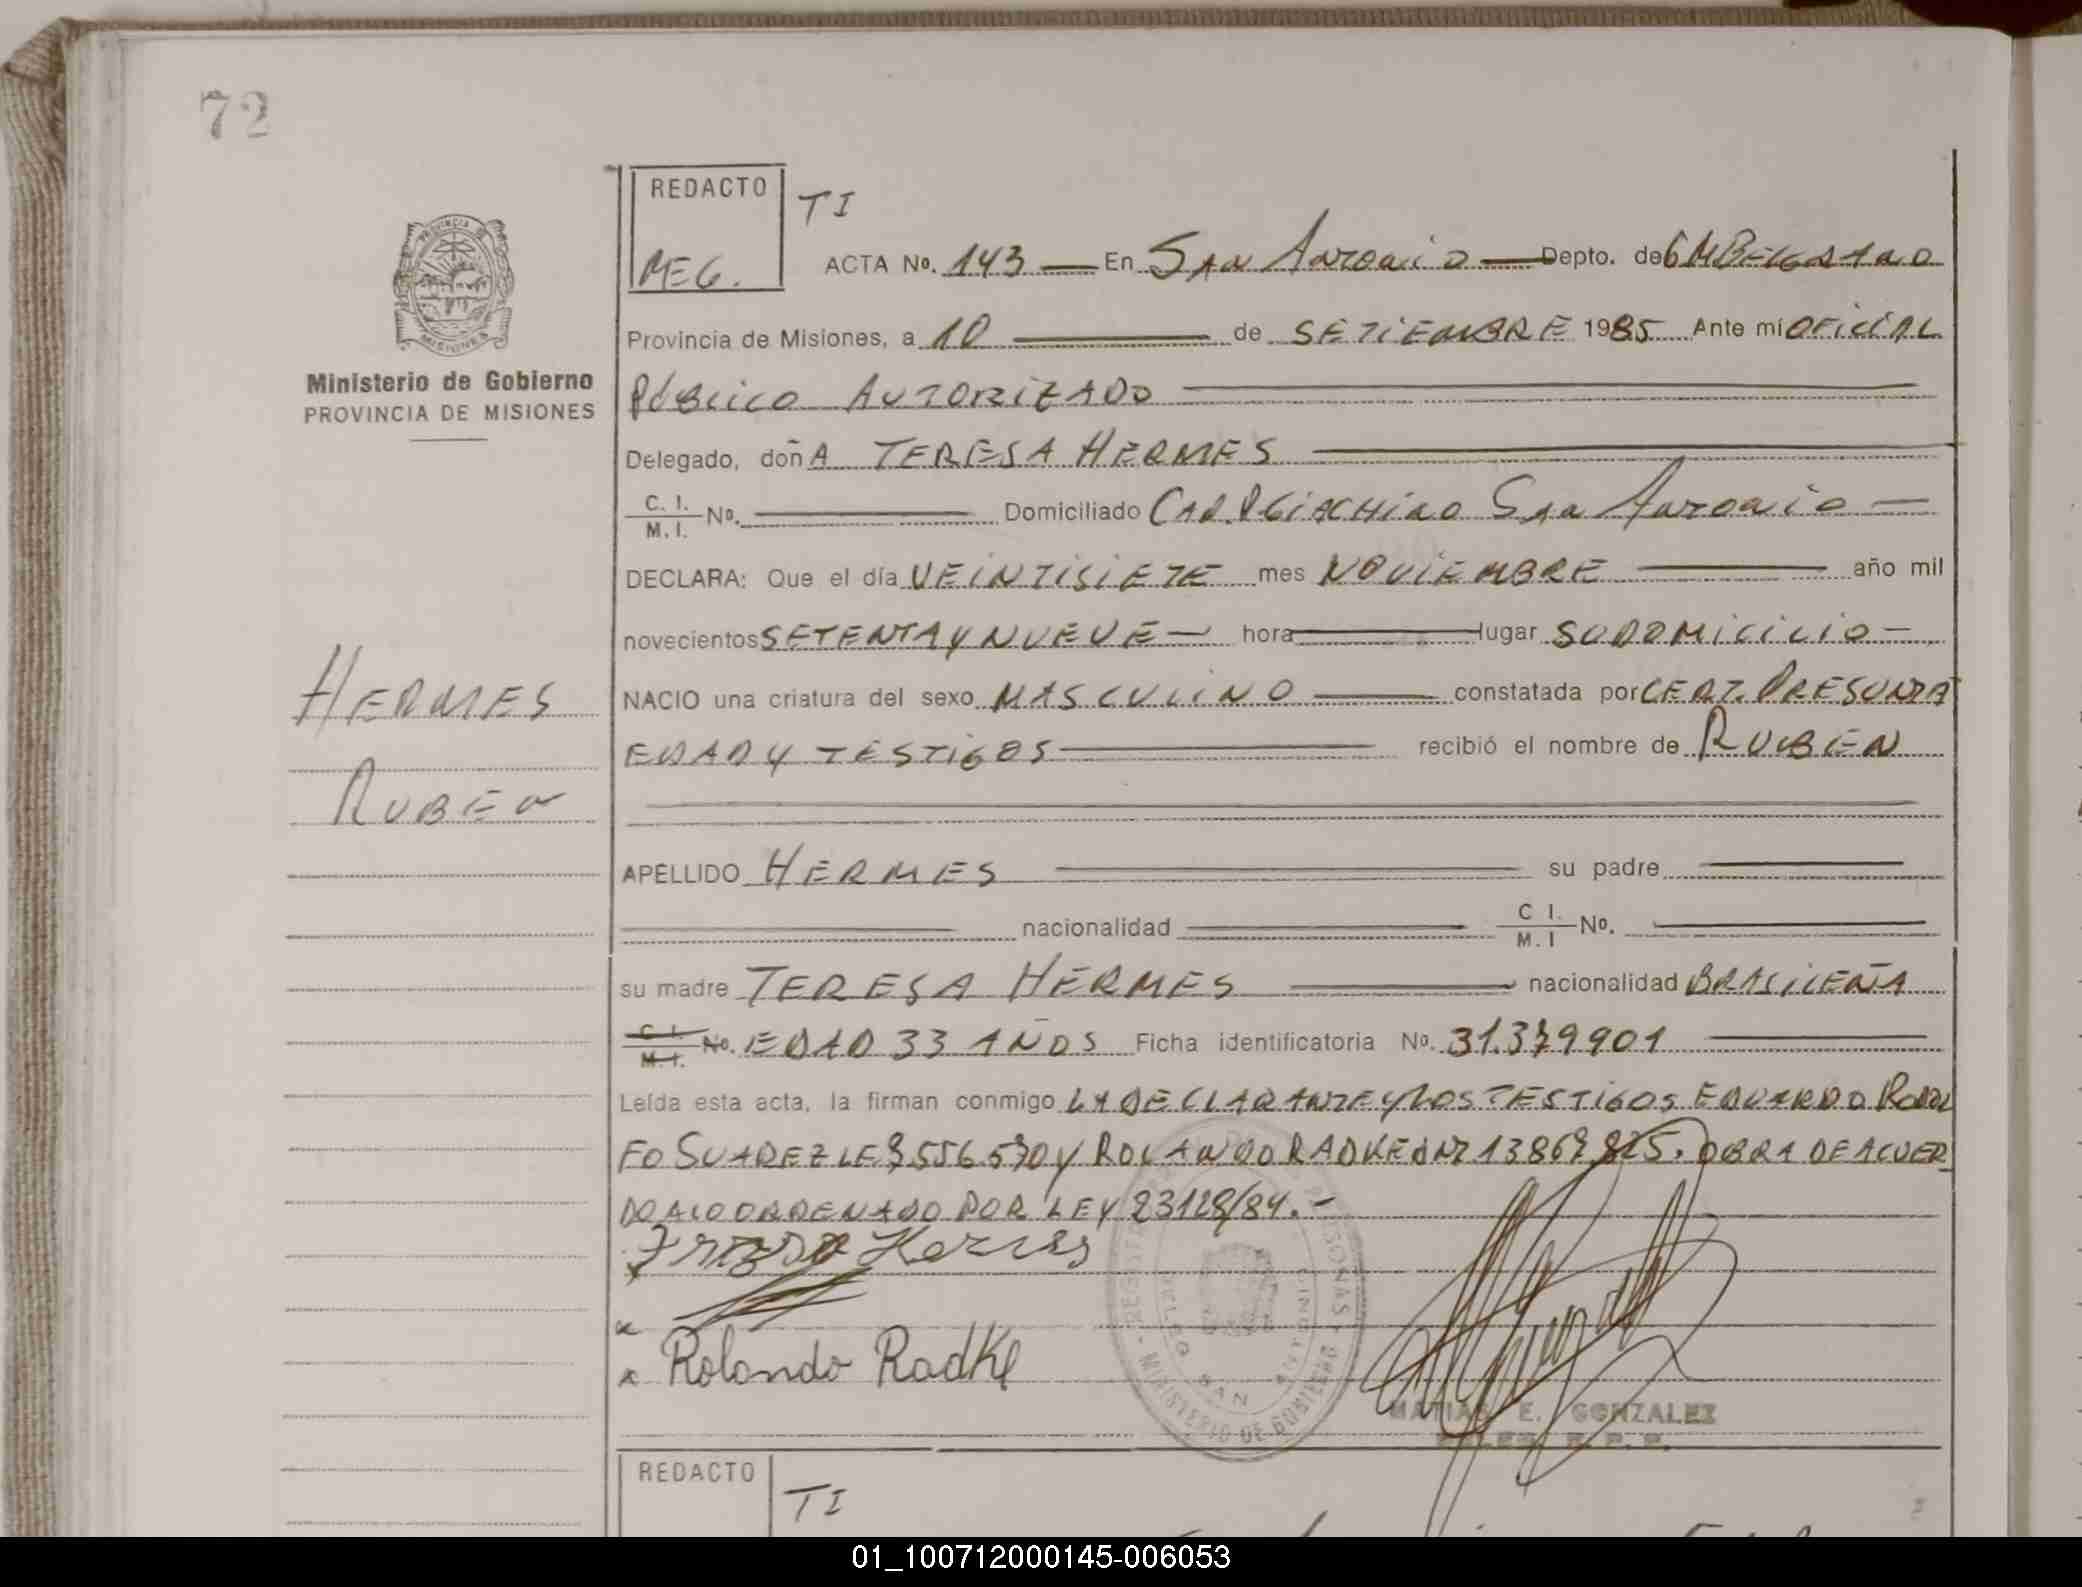 72
REDACTO
MEG.
TI
ACTA No. 143 — En SAN ANTONIO — Depto. de GMBELGRANO
PROVINCIA DE
MISIONES
Provincia de Misiones, a 10 — de SETIEMBRE 1985 Ante mi OFICIAL
Ministerio de Gobierno
PROVINCIA DE MISIONES
PÚBLICO AUTORIZADO
Delegado, doñA TERESA HERMES
C. I. / M. I. No. — Domiciliado SAN ANTONIO —
DECLARA: Que el día VEINTISIETE mes NOVIEMBRE — año mil
novecientos SETENTA Y NUEVE — hora — lugar SU DOMICILIO —
NACIO una criatura del sexo MASCULINO — constatada por CERT. PRESUNTA
EDAD Y TESTIGOS — recibió el nombre de RUBEN
HERMES
RUBEN
APELLIDO HERMES — su padre —
— nacionalidad — C I. / M. I No. —
su madre TERESA HERMES — nacionalidad BRASILEÑA
C. I. / M. I. No. EDAD 33 AÑOS Ficha identificatoria No. 31.379901 —
Leída esta acta, la firman conmigo LA DECLARANTE Y LOS TESTIGOS EDUARDO RODOL
FO SUAREZ LE 8556570 Y ROLANDO RADKE DNI 13867825. OBRA DE ACUER
DO A LO ORDENADO POR LEY 23128/84.-
Hermes
x
x Rolando Radke
REGISTRO PERSONAS
MINISTERIO DE GOBIERNO
SAN
MATIAS E. GONZALEZ
REDACTO
TI
01_100712000145-006053